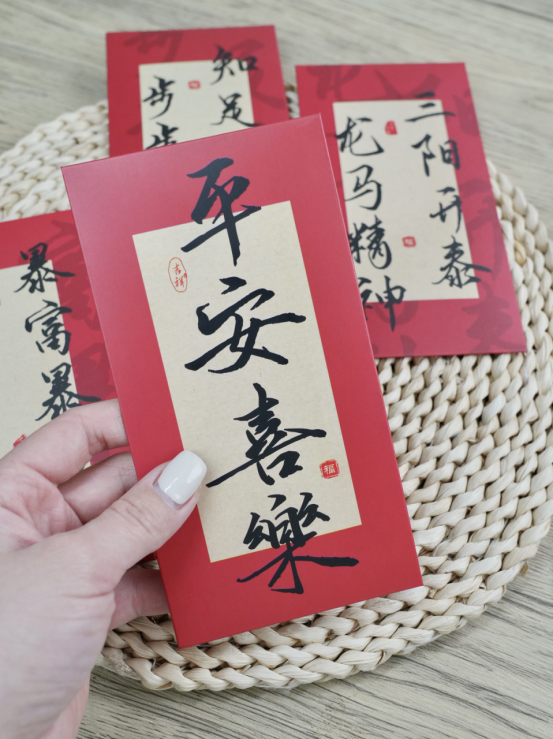 平安喜樂
吉祥
福
知足
步步
三阳开泰
龙马精神
暴富暴